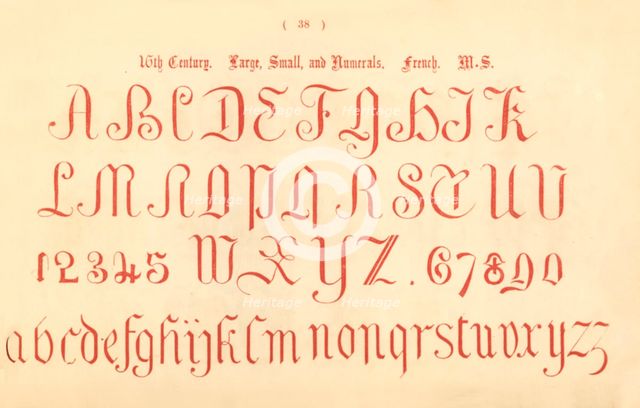 ( 38 )
16th Century. Large, Small, and Numerals. French. M.S.
A B C D E F G H I K
L M N O P Q R S T U V
1 2 3 4 5 W X Y Z . 6 7 8 9 0
a b c d e f g h i j k l m n o n q r s t u v x y z z
Heritage
Heritage
Heritage
Heritage
Heritage
Heritage
Heritage
Heritage